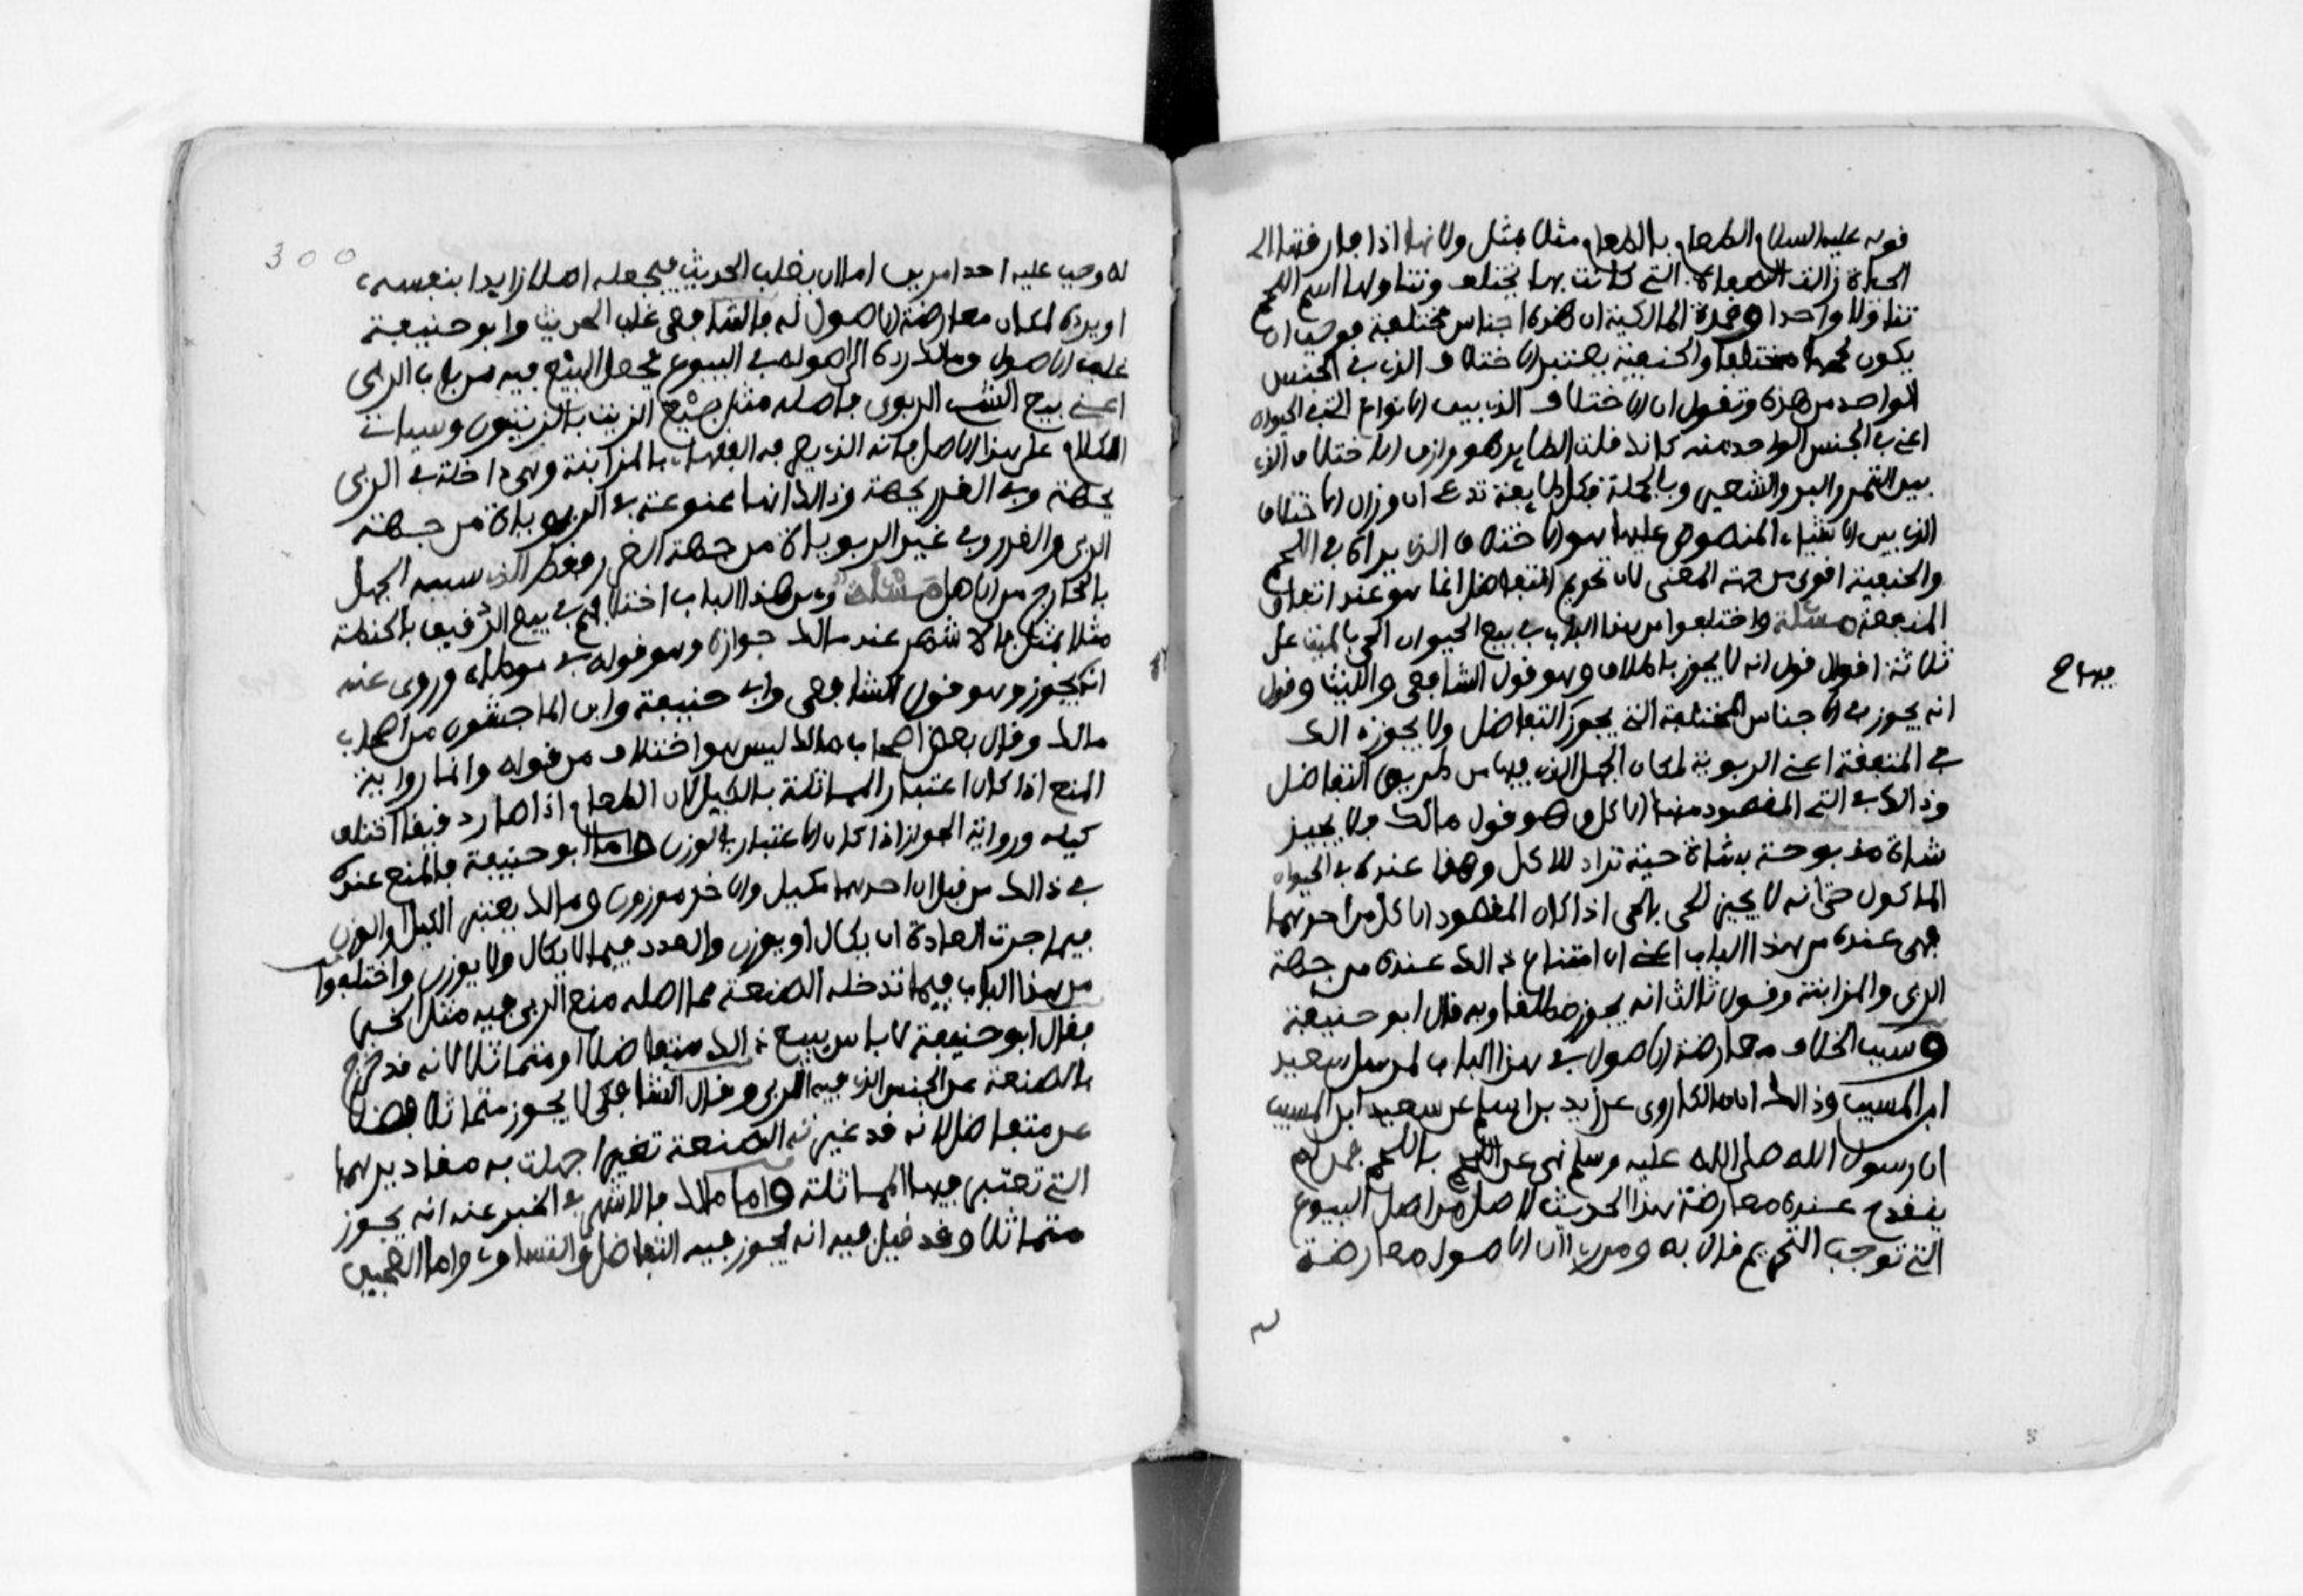 قوله عليه السلام الطعام بالطعام مثلا بمثل ولانها اذا فارقتها ال
الحياة زالت الصفات التي كانت بها تختلف وتناولها اسم اللحم
تناولا واحدا وعمدة المالكية ان هذه اجناس مختلفة فوجب ان
يكون لحمها مختلفا والحنفية تعتبر الاختلاف الذي في الجنس
الواحد من هذه وتقول ان الاختلاف الذي بين الانواع التي في الحيوان
اعني في الجنس الواحد منه كانك قلت الطاير هو وازن الاختلاف الذي
بين التمر والبر والشعير وبالجملة فكل طايفة تدعي ان وزان الاختلاف
الذي بين الاشياء المنصوص عليها هو الاختلاف الذي يراه في اللحم
والحنفية اقوى من جهة المعنى لان تحريم التفاضل انما هو عند اتفاق
المنفعة مسئلة واختلفوا من هذا الباب في بيع الحيوان الحي بالميت على
ثلاثة اقوال قول انه لا يجوز باطلاق وهو قول الشافعي والليث وقول
انه يجوز في الاجناس المختلفة التي يجوز التفاضل ولا يجوز ذالك
فيها ح
في المتفقة اعني الربوية لمكان الجهل الذي فيها من طريق التفاضل
وذالك في التي المقصود منها الاكل وهو قول مالك ولا يجيز
شاة مذبوحة بشاة حية تراد للاكل وهذا عنده في الحيوان
الماكول حتى انه لا يجيز الحي بالحي اذا كان المقصود الاكل من احدهما
فهي عنده من هذا الباب اعني ان امتناع ذالك عنده من جهة
الربى والمزابنة وقول ثالث انه يجوز مطلقا وبه قال ابو حنيفة
وسبب الخلاف معارضة الاصول في هذا الباب لمرسل سعيد
ابن المسيب وذالك ان مالكا روى عن زيد بن اسلم عن سعيد ابن المسيب
ان رسول الله صلى الله عليه وسلم نهى عن اللحم باللحم فمن لم
ينقدح عنده معارضة هذا الحديث لاصل من اصل البيوع
التي توجب التحريم قال به ومن راى ان الاصول معارضة
300
له وجب عليه احد امرين اما ان يغلب الحديث فيجعله اصلا زايدا بنفسه
او يرده لمكان معارضة الاصول له فالشافعي غلب الحديث وابو حنيفة
غلب الاصول ومالك رده الى اصوله في البيوع فجعل البيع فيه من باب الربى
اعني بيع الشيء الربوي باصله مثل بيع الزيت بالزيتون وسياتي
الكلام على هذا الاصل فانه الذي يعرفه الفقهاء بالمزابنة وهي داخلة في الربى
بجهة وفي الغرر بجهة وذالك انها ممنوعة في الربويات من جهة
الربى والغرر وفي غير الربويات من جهة الغرر فقط الذي سببه الجهل
بالخارج من الاصل مسئلة ومن هذا الباب اختلافهم في بيع الدقيق بالحنطة
مثلا بمثل فالاشهر عند مالك جوازه وهو قوله في موطئه وروي عنه
انه لا يجوز وهو قول الشافعي وابي حنيفة وابن الماجشون من اصحاب
مالك وقال بعض اصحاب مالك ليس هو اختلاف من قوله وانما رواية
المنع اذا كان اعتبار المماثلة بالكيل لان الطعام اذا صار دقيقا اختلف
كيله ورواية الجواز اذا كان الاعتبار بالوزن واما ابو حنيفة فالمنع عنده
في ذالك من قبل ان احدهما مكيل والاخر موزون ومالك يعتبر الكيل والوزن
فيما جرت العادة ان يكال او يوزن والعدد فيما لا يكال ولا يوزن واختلفوا
من هذا الباب فيما تدخله الصنعة مما اصله منع الربى فيه مثل الخبز
فقال ابو حنيفة لا باس ببيع ذالك متفاضلا او متماثلا لانه قد خرج
بالصنعة عن الجنس الذي فيه الربى وقال الشافعي لا يجوز متماثلا فضلا
عن متفاضل لانه قد غيرته الصنعة تغيرا جهلت به مقاديرهما
التي تعتبر فيها المماثلة واما مالك فالاشهر في الخبز عنه انه يجوز
متماثلا وقد قيل فيه انه يجوز فيه التفاضل والتساوي واما العجين